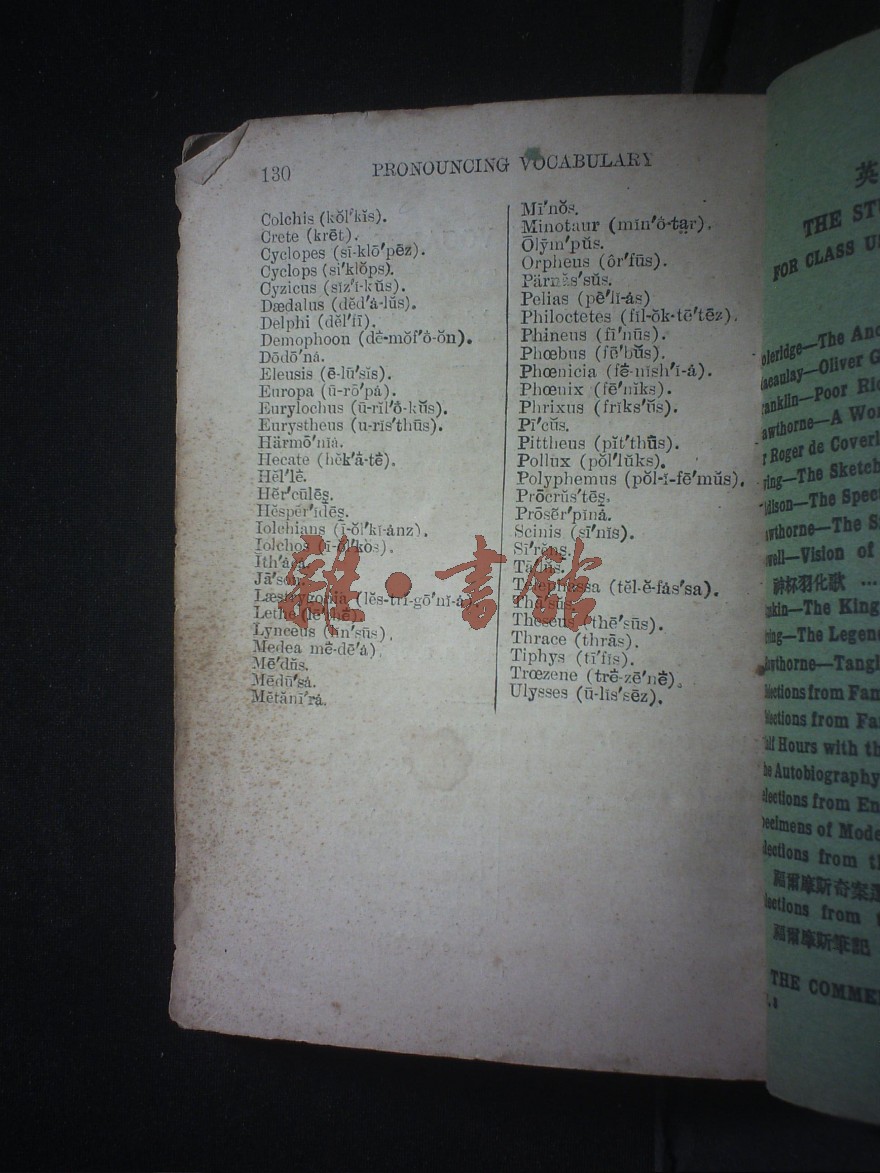 130 PRONOUNCING VOCABULARY
Colchis (kŏl′kĭs).
Crete (krēt).
Cyclopes (sī-klō′pēz).
Cyclops (sī′klŏps).
Cyzicus (sĭz′ĭ-kŭs).
Dædalus (dĕd′ȧ-lŭs).
Delphi (dĕl′fī).
Demophoon (dē̇-mŏf′ō̇-ŏn).
Dōdō′nȧ.
Eleusis (ē-lū′sĭs).
Europa (ū-rō′pȧ).
Eurylochus (ū-rĭl′ō̇-kŭs).
Eurystheus (u-rĭs′thūs).
Härmō′nĭȧ.
Hecate (hĕk′ȧ-tē̇).
Hĕl′lē̇.
Hẽr′cūlēs̱.
Hĕspẽr′ĭdēs̱.
Iolchians (ī-ŏl′kĭ-ȧnz).
Iolchos (ī-ŏl′kŏs).
Ĭth′ȧcȧ.
Jā′sŏn.
Læstrygonia (lĕs-trĭ-gō′nĭ-ȧ).
Lethe (lē′thē̇).
Lynceus (lĭn′sūs).
Medea mē̇-dē′ȧ).
Mē′dŭs.
Mēdū′sȧ.
Mĕtănī′rȧ.
Mī′nŏs.
Minotaur (mĭn′ō̇-ta̤r).
Ōly̆m′pŭs.
Orpheus (ôr′fūs).
Pärnăs′sŭs.
Pelias (pē′lĭ-ȧs)
Philoctetes (fĭl-ŏk-tē′tēz).
Phineus (fī′nūs).
Phœbus (fē′bŭs).
Phœnicia (fē̇-nĭsh′ĭ-ȧ).
Phœnix (fē′nĭks).
Phrixus (frĭks′ŭs).
Pī′cŭs.
Pittheus (pĭt′thūs).
Pollux (pŏl′lŭks).
Polyphemus (pŏl-ĭ-fē′mŭs).
Prōcrŭs′tēs̱.
Prōsẽr′pĭnȧ.
Scinis (sī′nĭs).
Sī′rĕns̱.
Telephassa (tĕl-ĕ-fás′sa).
Theseus (thē′sūs).
Thrace (thrās).
Tiphys (tī′fĭs).
Trœzene (trē̇-zē′nē̇).
Ulysses (ū-lĭs′sēz).
雜·書館
英
THE STU
FOR CLASS U
oleridge—The Anc
acaulay—Oliver G
ranklin—Poor Ric
awthorne—A Won
r Roger de Coverl
ving—The Sketch
ldison—The Spec
awthorne—The S
well—Vision of
羽化歌 ...
skin—The King
ing—The Legen
wthorne—Tangl
lections from Fam
lections from Fa
alf Hours with th
he Autobiography
elections from En
pecimens of Mode
lections from th
爾摩斯奇案
lections from
爾摩斯筆記
THE COMME